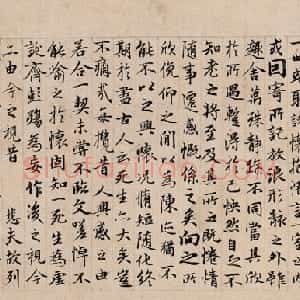 或因寄所託放浪形骸之外雖
趣舍萬殊靜躁不同當其欣
於所遇暫得於己怏然自足不
知老之將至及其所之既惓情
隨事遷感慨係之矣向之所
欣俛仰之間以為陳迹猶不
能不以之興懷況脩短隨化終
期於盡古人云死生亦大矣豈
不痛哉每攬昔人興感之由
若合一契未嘗不臨文嗟悼不
能喻之於懷固知一死生為虛
誕齊彭殤為妄作後之視今
亦由今之視昔 悲夫故列